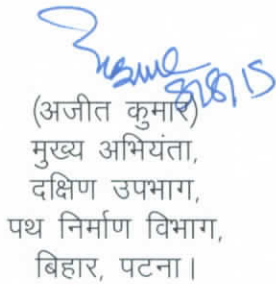 8/8/15
(अजीत कुमार)
मुख्य अभियंता,
दक्षिण उपभाग,
पथ निर्माण विभाग,
बिहार, पटना।